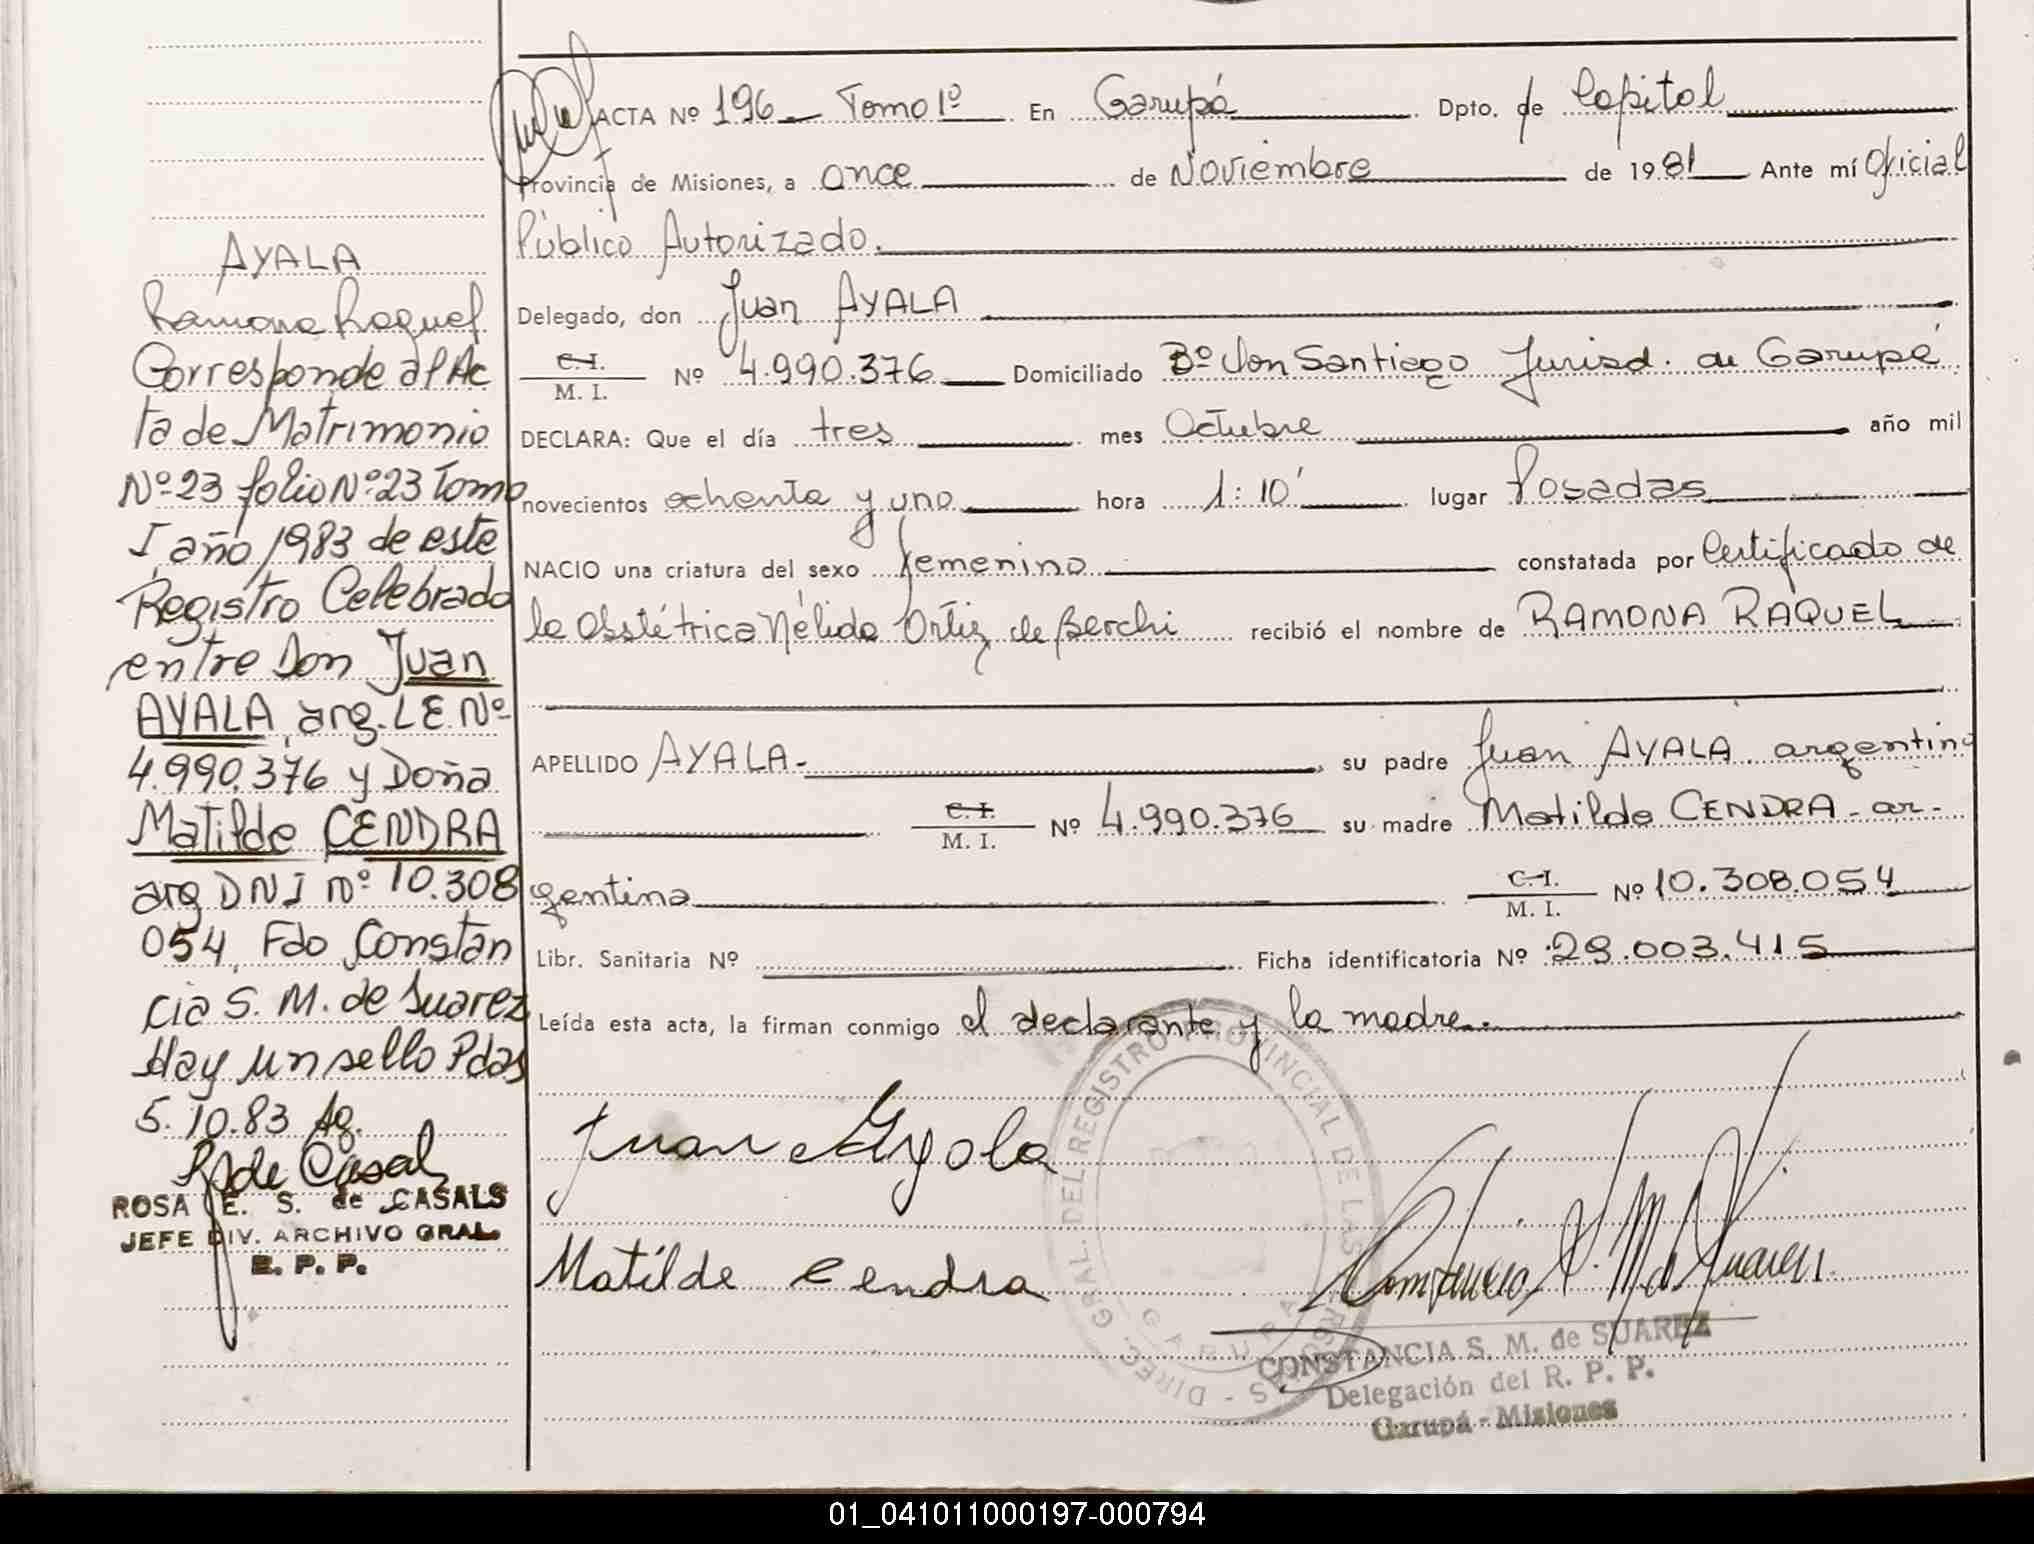 ACTA Nº 196 Tomo 1º En Garupá Dpto. de Capital
Provincia de Misiones, a once de Noviembre de 1981 Ante mí Oficial
Público Autorizado.
Delegado, don Juan AYALA
C. I. / M. I. Nº 4.990.376 Domiciliado Bº Don Santiago Jurisd. de Garupá
DECLARA: Que el día tres mes Octubre año mil
novecientos ochenta y uno hora 1:10' lugar Posadas
NACIO una criatura del sexo femenino constatada por Certificado de
la Obstétrica Nélida Ortiz de Berchi recibió el nombre de RAMONA RAQUEL
APELLIDO AYALA- su padre Juan AYALA argentino
C. I. / M. I. Nº 4.990.376 su madre Matilde CENDRA - ar-
gentina C. I. / M. I. Nº 10.308.054
Libr. Sanitaria Nº Ficha identificatoria Nº 29.003.415
Leída esta acta, la firman conmigo el declarante y la madre.
Juan Ayala
Matilde Cendra
Constancia S. M. de Suarez
CONSTANCIA S. M. de SUAREZ
Delegación del R. P. P.
Garupá - Misiones
DIREC. GRAL. DEL REGISTRO PROVINCIAL DE LAS PERSONAS -
GARUPA
AYALA
Ramona Raquel
Corresponde al Ac
ta de Matrimonio
Nº 23 folio Nº 23 Tomo
I, año 1983 de este
Registro Celebrado
entre Don Juan
AYALA, arg. LE Nº
4.990.376 y Doña
Matilde CENDRA
arg DNI nº 10.308
054, Fdo Constan
cia S. M. de Suarez
Hay un sello Pdas
5.10.83 Ag.
R de Casal
ROSA E. S. de CASALS
JEFE DIV. ARCHIVO GRAL.
R. P. P.
01_041011000197-000794